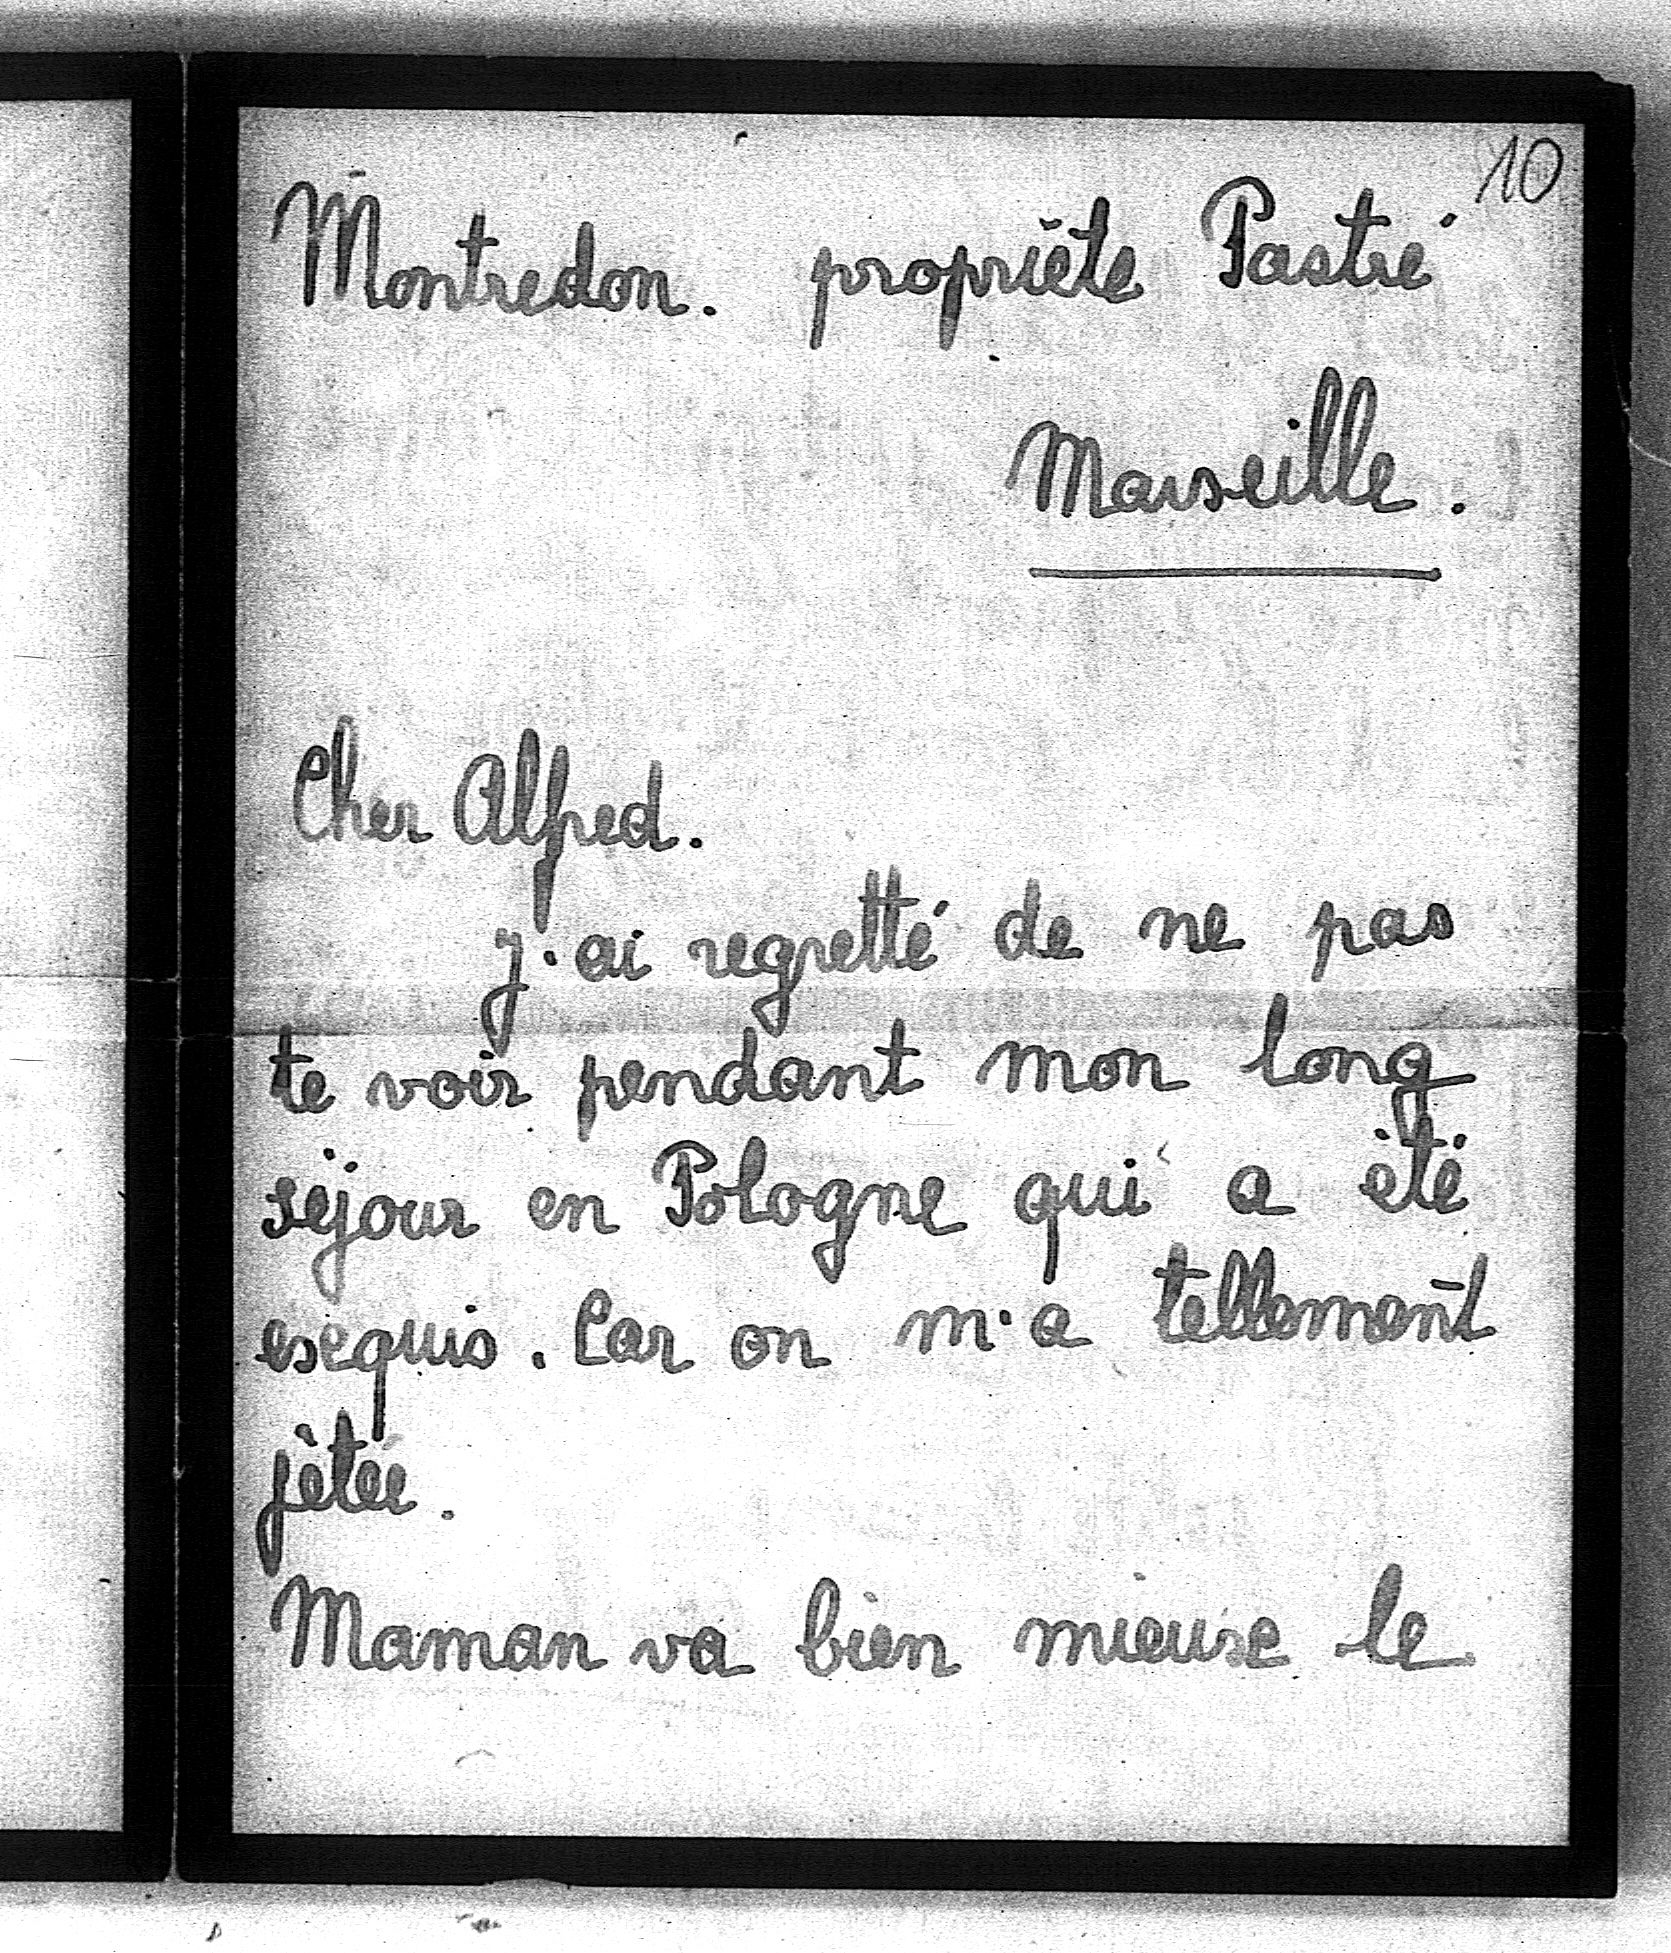 10
Montredon. propriété Pastré
Marseille.
Cher Alfred.
J'ai regretté de ne pas
te voir pendant mon long
séjour en Pologne qui a été
exquis. Car on m'a tellement
fêtée.
Maman va bien mieux le